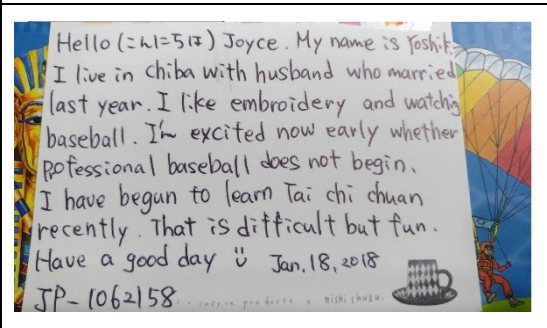 Hello (こんにちは) Joyce. My name is Yoshik
I live in chiba with husband who married
last year. I like embroidery and watching
baseball. I'm excited now early whether
pofessional baseball does not begin.
I have begun to learn Tai chi chuan
recently. That is difficult but fun.
Have a good day Jan. 18, 2018
JP-1062158